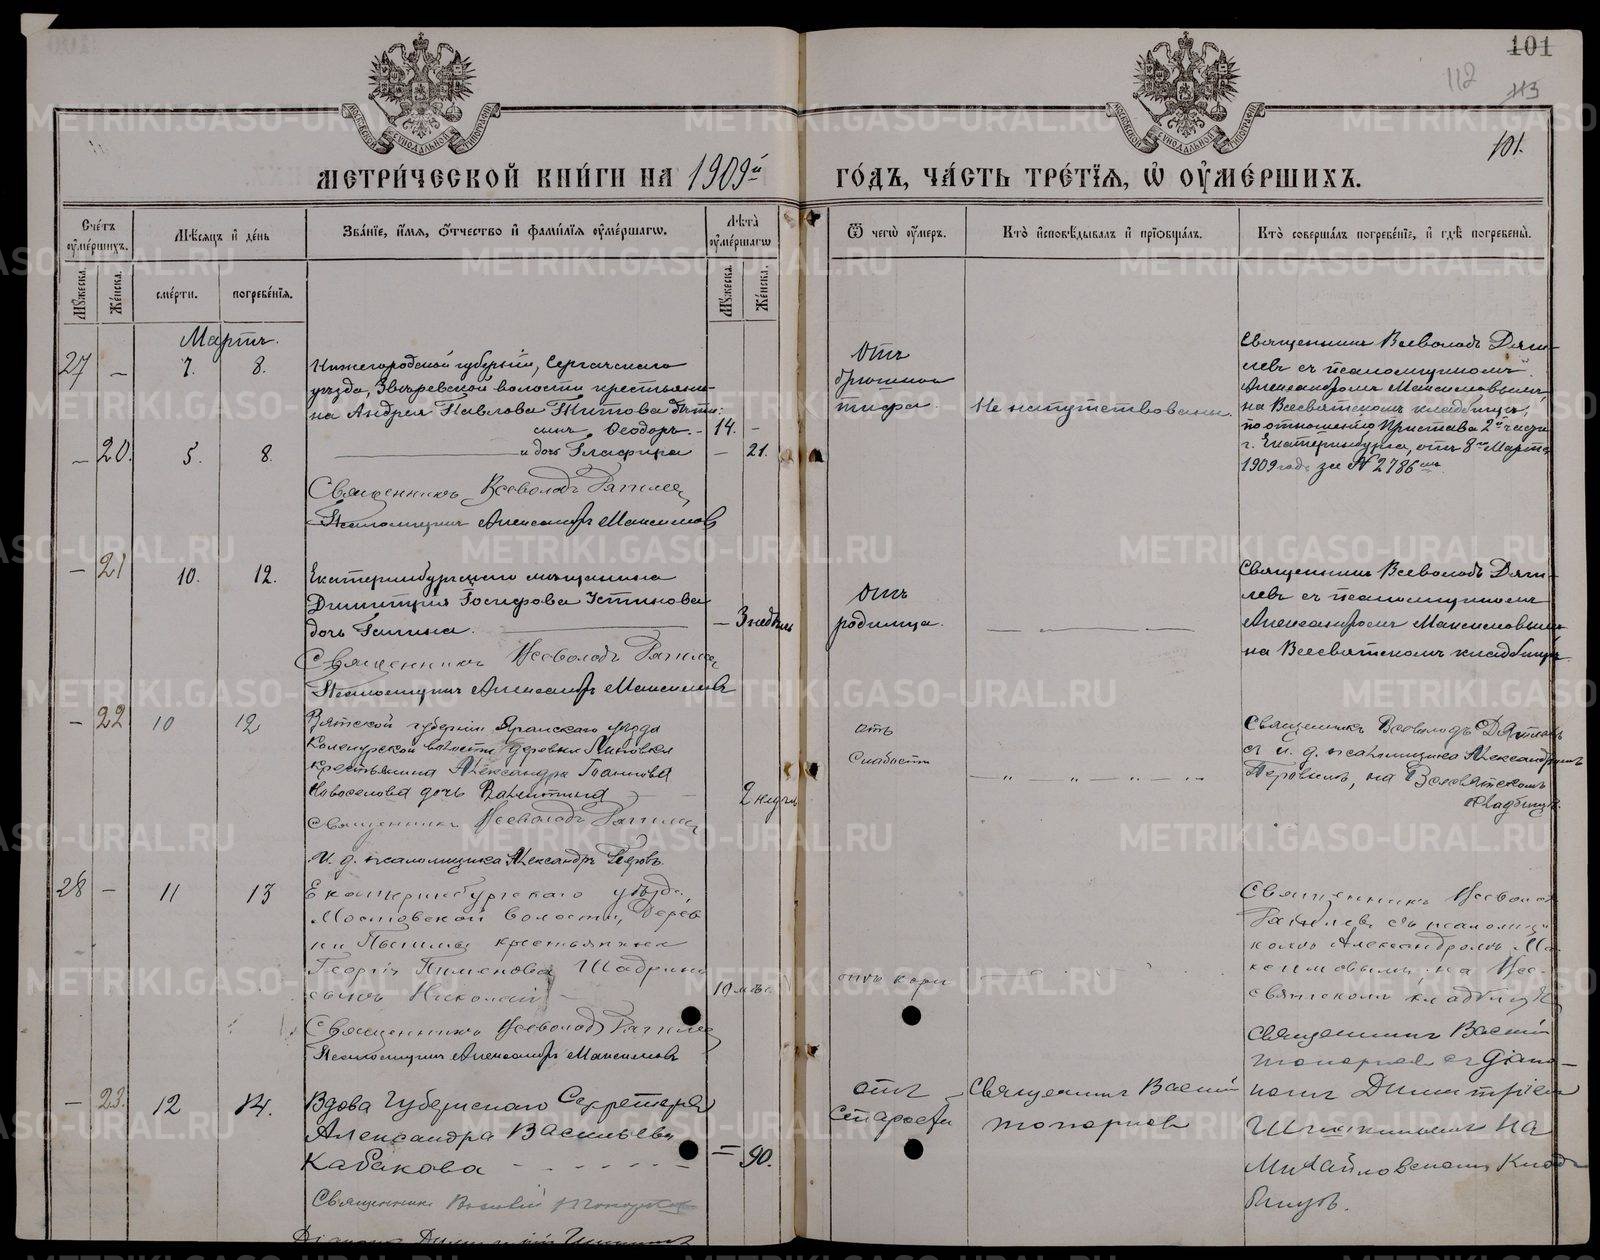 101
112
113
101.
МОСКОВСКОЙ СѴНОДАЛЬНОЙ ТИПОГРАФІИ
МОСКОВСКОЙ СѴНОДАЛЬНОЙ ТИПОГРАФІИ
МЕТРИ́ЧЕСКОЙ КНИ́ГИ НА 1909й ГО́ДЪ, ЧА́СТЬ ТРЕ́ТІѦ, Ѿ ОУ҆МЕ́РШИХЪ.
Сче́тъ оу҆ме́ршихъ.
Мѣсяцъ и҆ де́нь
Зва́нїе, и҆́мѧ, ѻ҆́тчество и҆ фами́лїѧ оу҆ме́ршагѡ.
Лѣта̀ оу҆ме́ршагѡ
Ѿ чегѡ̀ оу҆́меръ.
Кто̀ и҆сповѣ́дывалъ и҆ прїѡбща́лъ.
Кто̀ соверша́лъ погребе́нїе, и҆ гдѣ̀ погребены̀.
Мꙋ́жеска.
Же́нска.
сме́рти.
погребе́нїѧ.
Мꙋ́жеска.
Же́нска.
Мартъ.
27 – 7. 8.
Нижегородской губерніи, Сергачскаго
уѣзда, Звѣревской волости крестьяни-
на Андрея Павлова Титова дѣти:
сынъ Ѳеодоръ. – 14. –
– 20. 5. 8. и дочь Глафира – 21.
Отъ
брюшного
тифа.
Не напутствованы.
Священникъ Всеволодъ Дяги-
левъ съ псаломщикомъ
Александромъ Максимовымъ,
на Всесвятскомъ кладбищѣ,
по отношенію Пристава 2й части
г. Екатеринбурга, отъ 8го Марта
1909 года за № 2786мъ.
Священникъ Всеволодъ Дягилев
Псаломщикъ Александръ Максимовъ
– 21 10. 12.
Екатеринбургскаго мѣщанина
Димитрія Іосифова Устинова
дочь Галина. – 3 недѣль
Отъ
родимца.
Священникъ Всеволодъ Дяги-
левъ съ псаломщикомъ
Александромъ Максимовымъ
на Всесвятскомъ кладбищѣ
Священникъ Всеволодъ Дягилев
Псаломщикъ Александръ Максимовъ
– 22 10 12
Вятской губерніи Яранскаго уѣзда
волости деревни
крестьянина Александра Іоаннова
Новоселова дочь Валентина 2 недѣль
отъ
слабости
– " – " – " –
Священникъ Всеволодъ Дягилевъ
съ и. д. псаломщика Александромъ
на Всесвятскомъ
кладбищѣ.
Священникъ Всеволодъ Дягилев
И. д. псаломщика Александръ
28 – 11 13
Екатеринбургскаго уѣзда
Мостовской волости, дерев
ни Пышмы крестьянина
Георгія Пименова Шадрина
сынъ Николай 10 мѣс.
отъ кори
Священникъ Всеволодъ
Дягилевъ съ псаломщи
комъ Александромъ Ма-
ксимовымъ на Все-
святскомъ кладбищѣ
Священникъ Всеволодъ Дягилев
Псаломщикъ Александръ Максимовъ
– 23. 12 14.
Вдова Губернскаго Секретаря
Александра Васильева
Кабакова = 90.
отъ
старости
Священникъ Василій
Топорковъ
Священникъ Василій
Топорковъ съ Діако-
номъ Димитріемъ
Шишкинымъ на
Михайловскомъ Клад-
бищѣ.
Священникъ Василій Топорковъ
Діаконъ Димитрій Шишкинъ
METRIKI.GASO-URAL.RU